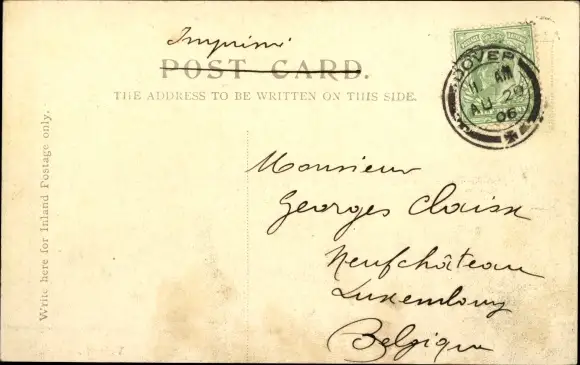 Imprimé
POST CARD.
THE ADDRESS TO BE WRITTEN ON THIS SIDE.
Write here for Inland Postage only.
DOVER
AM
AU 29
06
Monsieur
Georges
Neufchâteau
Luxembourg
Belgique